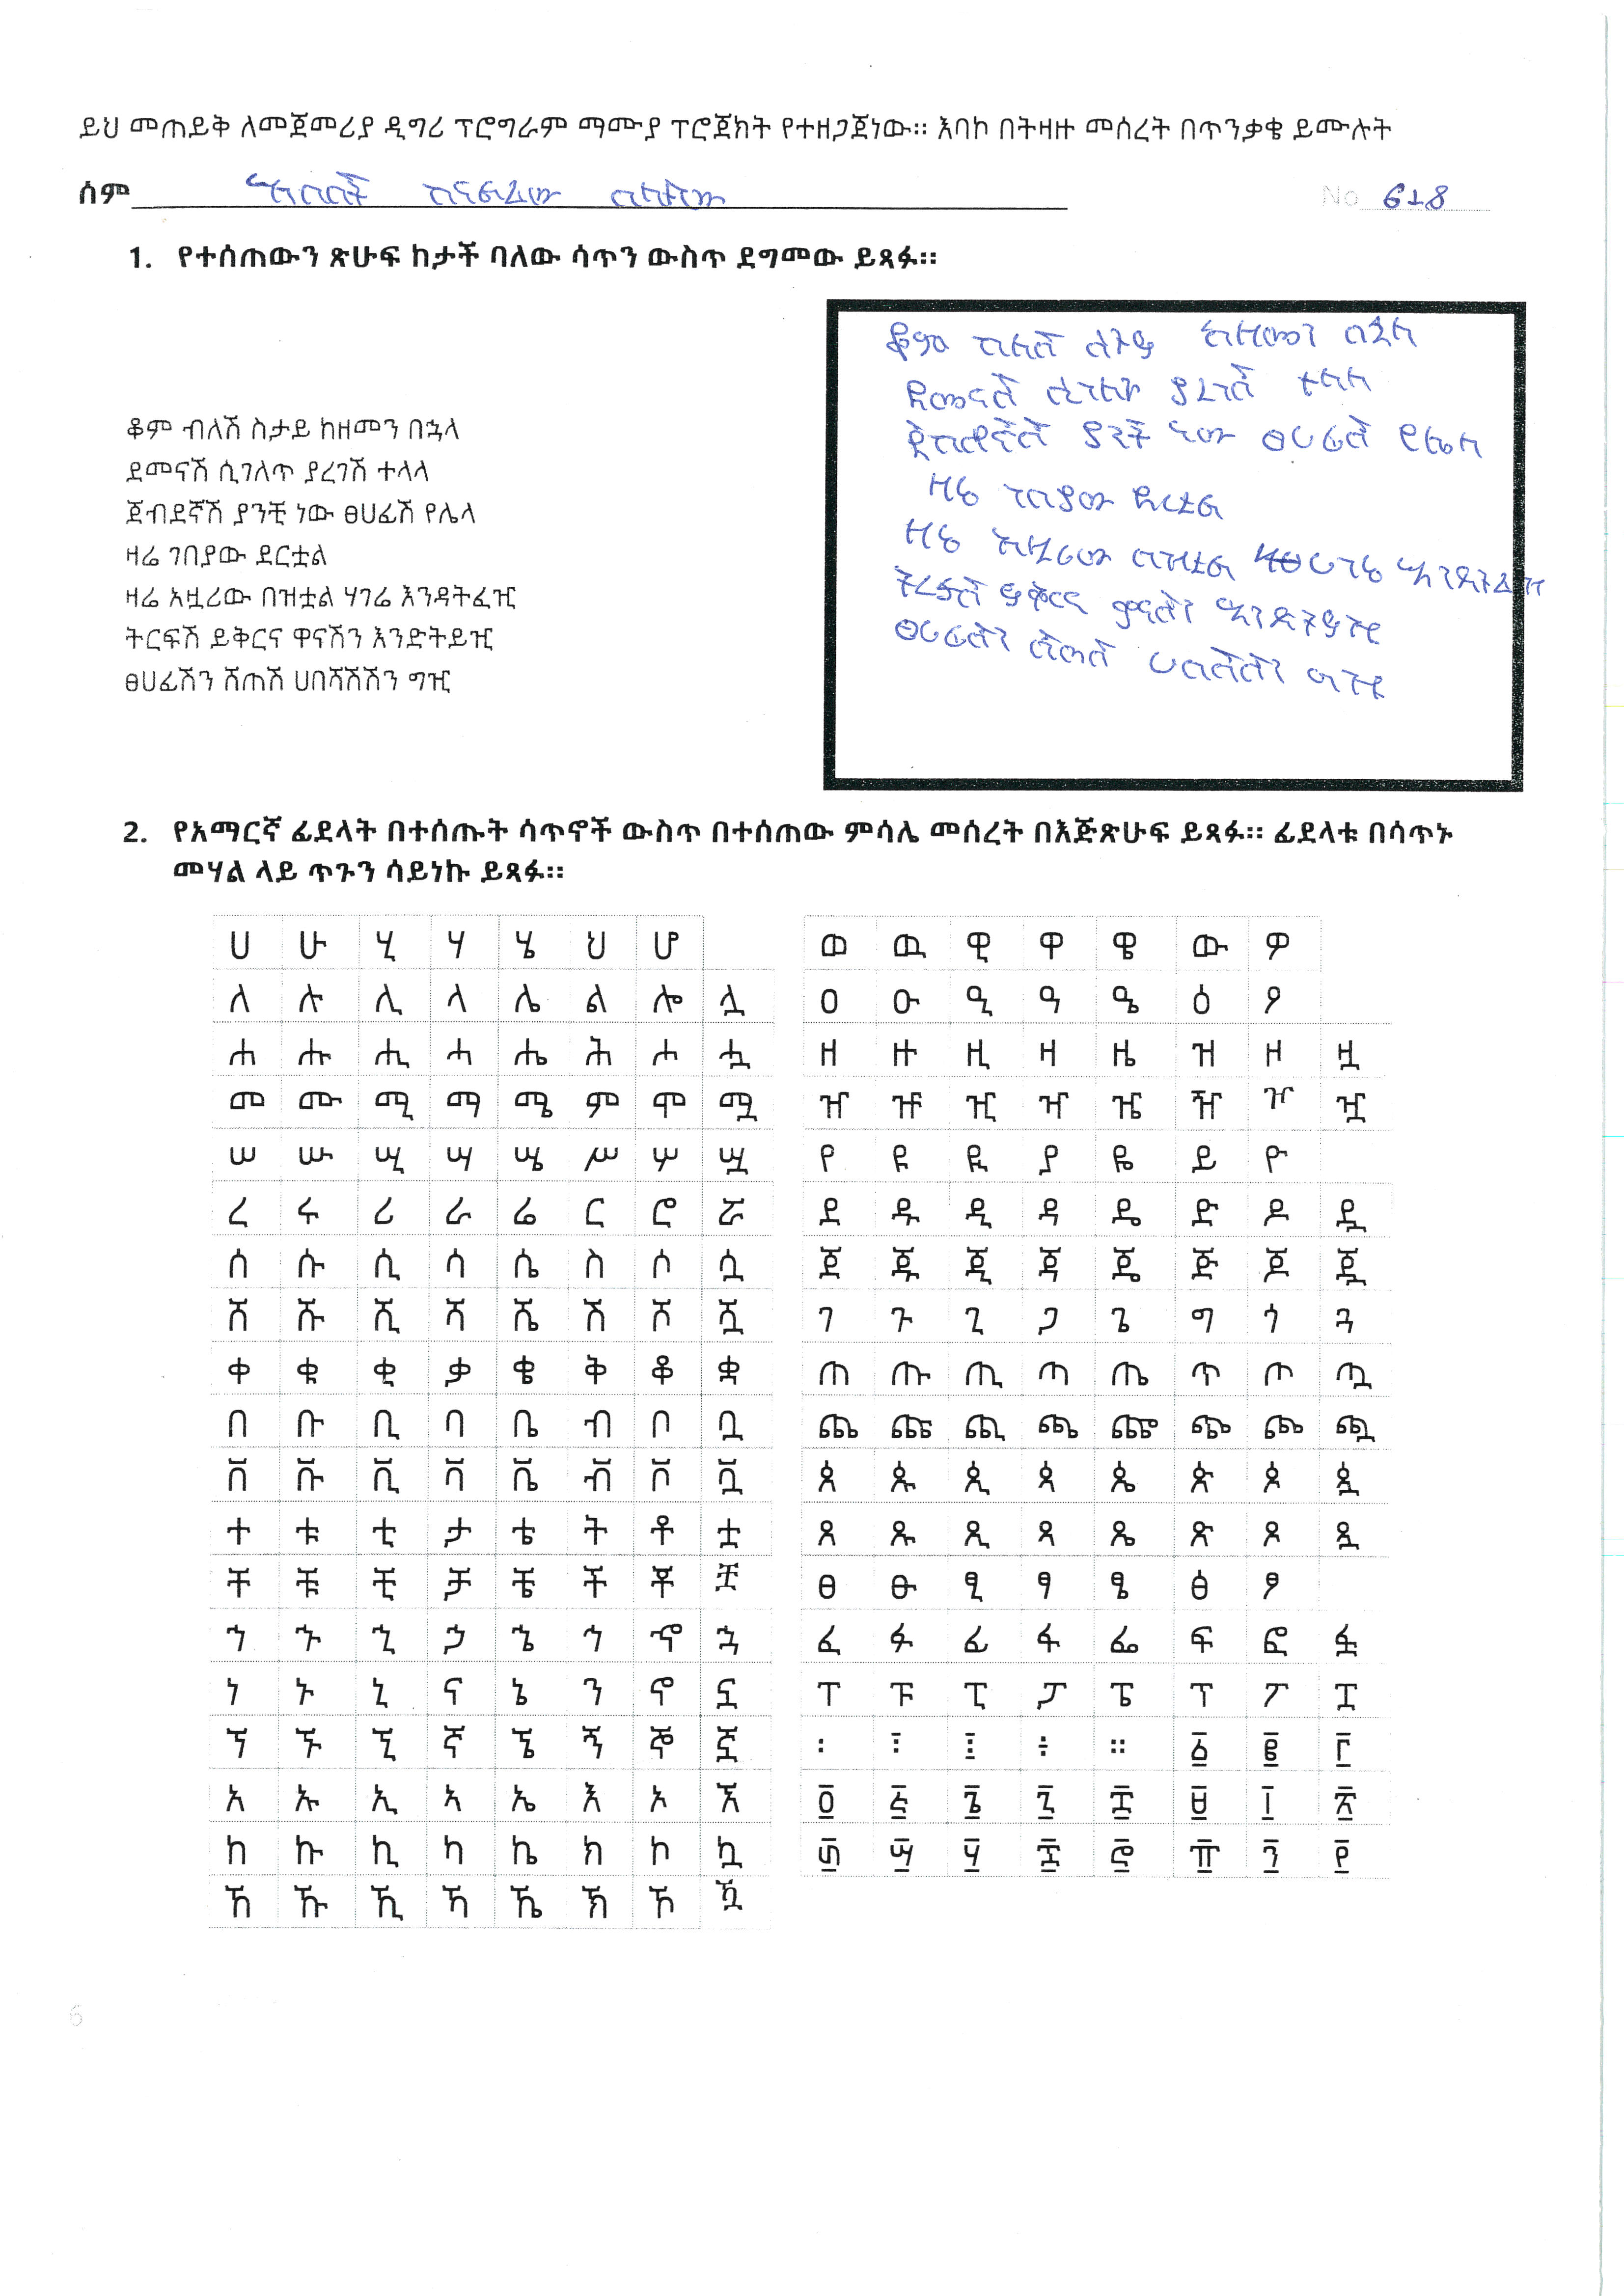 ይህ መጠይቅ ለመጀመሪያ ዲግሪ ፕሮግራም ማሙያ ፕሮጀክት የተዘጋጀነው። እባኮ በትዛዙ መሰረት በጥንቃቄ ይሙሉት
ሰም No 618
1. የተሰጠውን ጽሁፍ ከታች ባለው ሳጥን ውስጥ ደግመው ይጻፉ።
ቆም ብለሽ ስታይ ከዘመን በኋላ
ደመናሽ ሲገለጥ ያረገሽ ተላላ
ጀብደኛሽ ያንቺ ነው ፀሀፊሽ የሌላ
ዛሬ ገበያው ደርቷል
ዛሬ አዟሪው በዝቷል ሃገሬ እንዳትፈዢ
ትርፍሽ ይቅርና ዋናሽን እንድትይዢ
ፀሀፊሽን ሸጠሽ ሀበሻሽሽን ግዢ
ቆም ብለሽ ስታይ ከዘመን በኋላ
ደመናሽ ሲገለጥ ያረገሽ ተላላ
ጀብደኛሽ ያንች ነው ፀሀፊሽ የሌላ
ዛሬ ገበያው ደርቷል
ዛሬ አዟሪው በዝቷል ሀገሬ እንዳትፈዢ
ትርፍሽ ይቅርና ዋናሽን እንድትይዢ
ፀሀፊሽን ሽጠሽ ሀበሻሽን ግዢ
2. የአማርኛ ፊደላት በተሰጡት ሳጥኖች ውስጥ በተሰጠው ምሳሌ መሰረት በእጅጽሁፍ ይጻፉ። ፊደላቱ በሳጥኑ
መሃል ላይ ጥጉን ሳይነኩ ይጻፉ።
ሀ ሁ ሂ ሃ ሄ ህ ሆ
ለ ሉ ሊ ላ ሌ ል ሎ ሏ
ሐ ሑ ሒ ሓ ሔ ሕ ሖ ሗ
መ ሙ ሚ ማ ሜ ም ሞ ሟ
ሠ ሡ ሢ ሣ ሤ ሥ ሦ ሧ
ረ ሩ ሪ ራ ሬ ር ሮ ሯ
ሰ ሱ ሲ ሳ ሴ ስ ሶ ሷ
ሸ ሹ ሺ ሻ ሼ ሽ ሾ ሿ
ቀ ቁ ቂ ቃ ቄ ቅ ቆ ቋ
በ ቡ ቢ ባ ቤ ብ ቦ ቧ
ቨ ቩ ቪ ቫ ቬ ቭ ቮ ቯ
ተ ቱ ቲ ታ ቴ ት ቶ ቷ
ቸ ቹ ቺ ቻ ቼ ች ቾ ቿ
ኀ ኁ ኂ ኃ ኄ ኅ ኆ ኋ
ነ ኑ ኒ ና ኔ ን ኖ ኗ
ኘ ኙ ኚ ኛ ኜ ኝ ኞ ኟ
አ ኡ ኢ ኣ ኤ እ ኦ ኧ
ከ ኩ ኪ ካ ኬ ክ ኮ ኳ
ኸ ኹ ኺ ኻ ኼ ኽ ኾ ዃ
ወ ዉ ዊ ዋ ዌ ው ዎ
ዐ ዑ ዒ ዓ ዔ ዕ ዖ
ዘ ዙ ዚ ዛ ዜ ዝ ዞ ዟ
ዠ ዡ ዢ ዣ ዤ ዥ ዦ ዧ
የ ዩ ዪ ያ ዬ ይ ዮ
ደ ዱ ዲ ዳ ዴ ድ ዶ ዷ
ጀ ጁ ጂ ጃ ጄ ጅ ጆ ጇ
ገ ጉ ጊ ጋ ጌ ግ ጎ ጓ
ጠ ጡ ጢ ጣ ጤ ጥ ጦ ጧ
ጨ ጩ ጪ ጫ ጬ ጭ ጮ ጯ
ጰ ጱ ጲ ጳ ጴ ጵ ጶ ጷ
ጸ ጹ ጺ ጻ ጼ ጽ ጾ ጿ
ፀ ፁ ፂ ፃ ፄ ፅ ፆ
ፈ ፉ ፊ ፋ ፌ ፍ ፎ ፏ
ፐ ፑ ፒ ፓ ፔ ፕ ፖ ፗ
፡ ፤ ። ፩ ፪ ፫
፬ ፭ ፮ ፯ ፰ ፱ ፲ ፳
፴ ፵ ፶ ፷ ፸ ፹ ፺ ፻
6